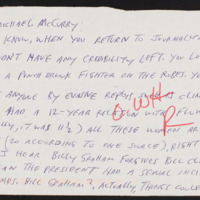 MICHAEL McCURRY
KNOW, WHEN YOU RETURN TO JOURNALIS
DON'T HAVE ANY CREDIBILITY LEFT. YOU LO
A PUNCH DRUNK FIGHTER ON THE ROPES. YO
ANYONE BY EVASIVE REPLYS.
HAD A 12-YEAR RELATION WITH FLOW
LLY, IT WAS 11½) ALL THESE WOMEN AR
(20 ACCORDING TO ONE SOURCE), RIGHT
I HEAR BILLY GRAHAM FORGIVES BILL CL
EAN THE PRESIDENT HAD A SEXUAL INCI
MRS. BILL GRAHAM?, ACTUALLY, THINGS COULD
O WH
R